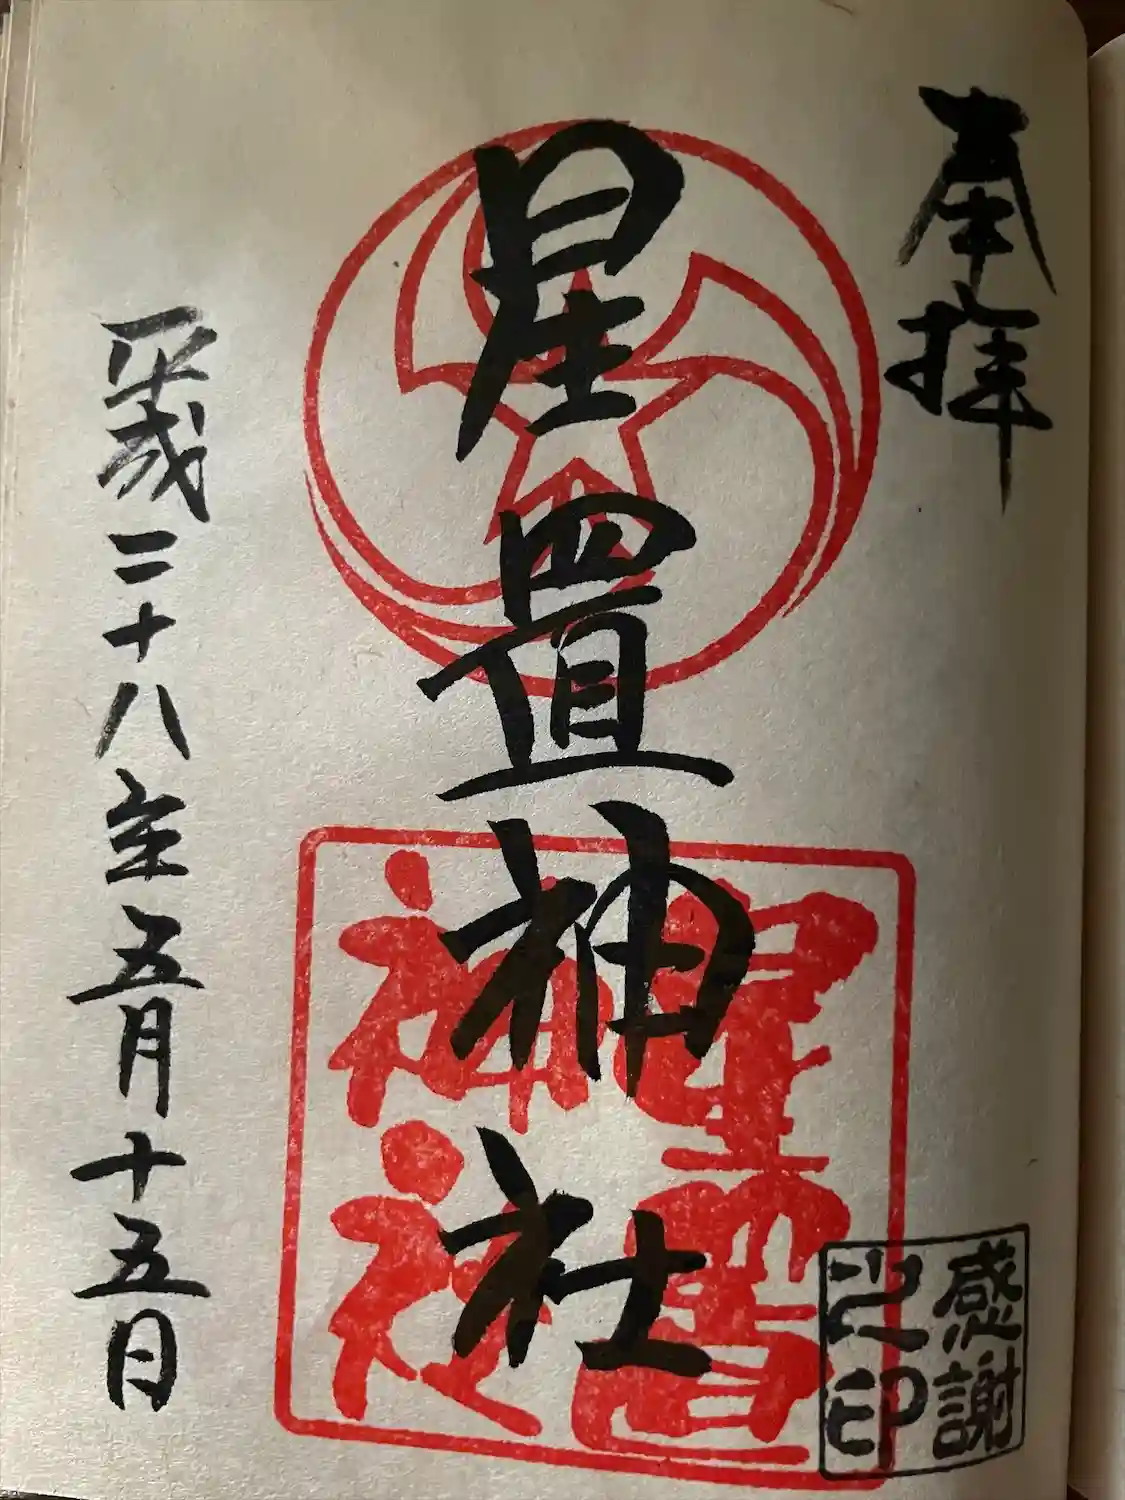 奉拝
星置神社
星置神社
感謝
之印
平成二十八年五月十五日